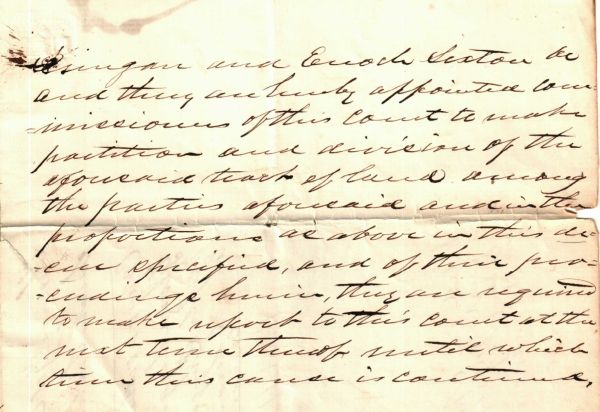 and Enoch Sexton be
and they are hereby appointed com-
missioners of this Court to make
partition and division of the
aforesaid tract of land among
the parties aforesaid and in the
proportions as above in this de-
-cree specified, and of their pro-
-ceedings herein, they are required
to make report to this Court at the
next term thereof until which
time this cause is continued.